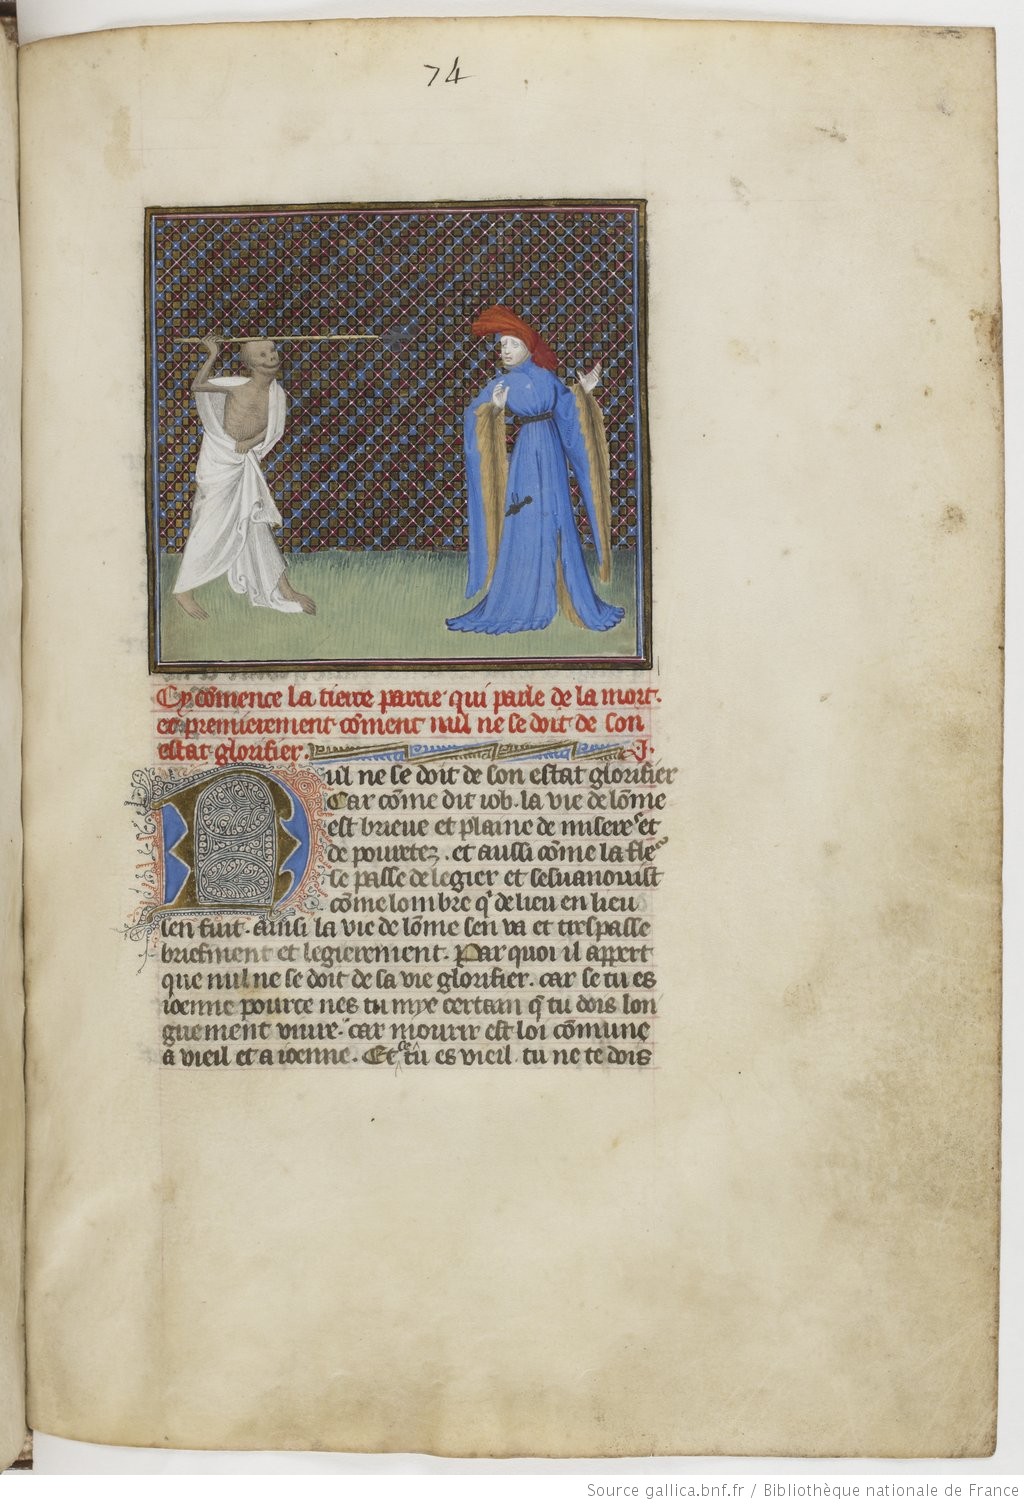 74
Cy cōmence la tierce partie qui parle de la mort.
et premierement cōment nul ne se doit de son
estat glorifier. .I.
Nul ne se doit de son estat glorifier
Car cōme dit iob. la vie de lōme
est brieue et plaine de misere et
de pouretez. et aussi cōme la fleᵘʳ
se passe de legier et sesuanouist
cōme lombre q̄ de lieu en lieu
sen fuit. ainsi la vie de lōme sen va et trespasse
briefment et legierement. Par quoi il appert
que nul ne se doit de sa vie glorifier. car se tu es
ioenne pource nes tu mye certain q̄ tu dois lon
guement viure. car mourir est loi cōmune
a vieil et a ioenne. Et ce tu es vieil tu ne te dois
Source gallica.bnf.fr / Bibliothèque nationale de France